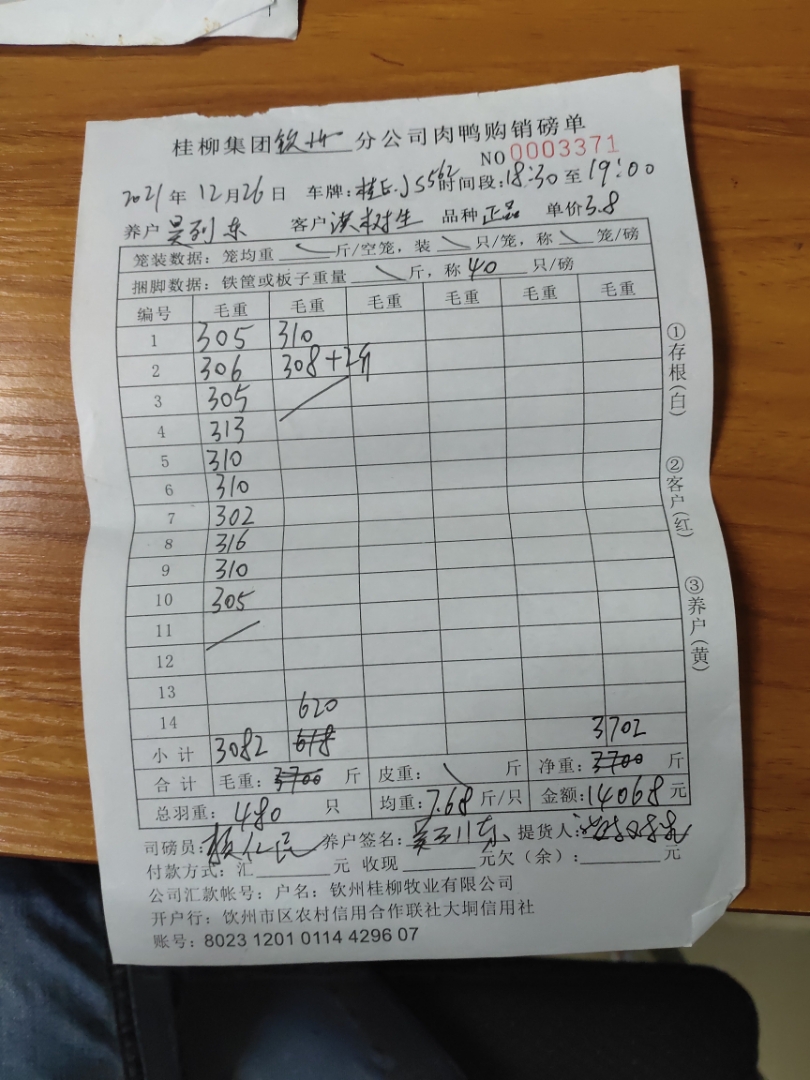 桂柳集团钦州分公司肉鸭购销磅单
NO 0003371
2021年12月26日 车牌:桂E.J5562 时间段:18:30至19:00
养户 吴列东 客户 洪树生 品种 正品 单价3.8
笼装数据:笼均重 斤/空笼,装 只/笼,称 笼/磅
捆脚数据:铁筐或板子重量 斤,称 40 只/磅
编号 毛重 毛重 毛重 毛重 毛重 毛重
1 305 310
2 306 308+2斤
3 305
4 313
5 310
6 310
7 302
8 316
9 310
10 305
11
12
13
14 620
小计 3082 618 3702
合计 毛重:3700 斤 皮重: 斤 净重:3700 斤
总羽重:480 只 均重:7.68斤/只 金额:14068元
司磅员: 养户签名: 提货人:
付款方式:汇 元 收现 元欠(余): 元
公司汇款帐号:户名:钦州桂柳牧业有限公司
开户行:钦州市区农村信用合作联社大垌信用社
账号:8023 1201 0114 4296 07
①存根(白)
②客户(红)
③养户(黄)